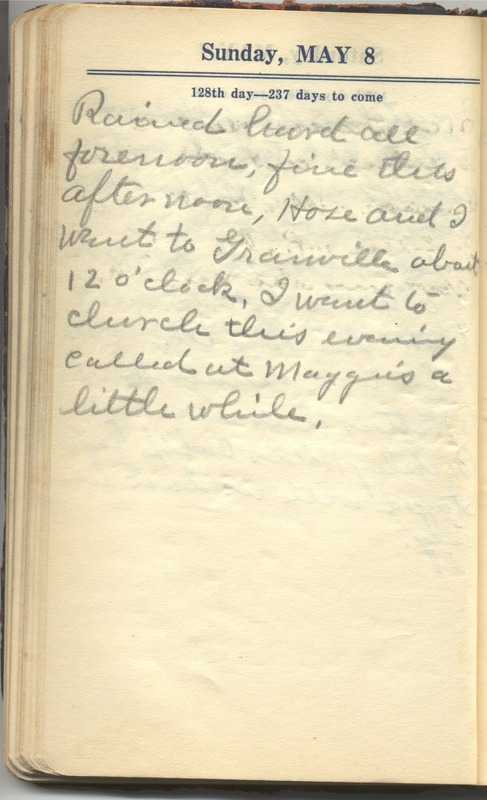 Sunday, MAY 8
128th day—237 days to come
Rained hard all
forenoon, fine this
afternoon, Hose and I
went to Granville about
12 o'clock, I went to
church this evening
called at Maggie's a
little while.